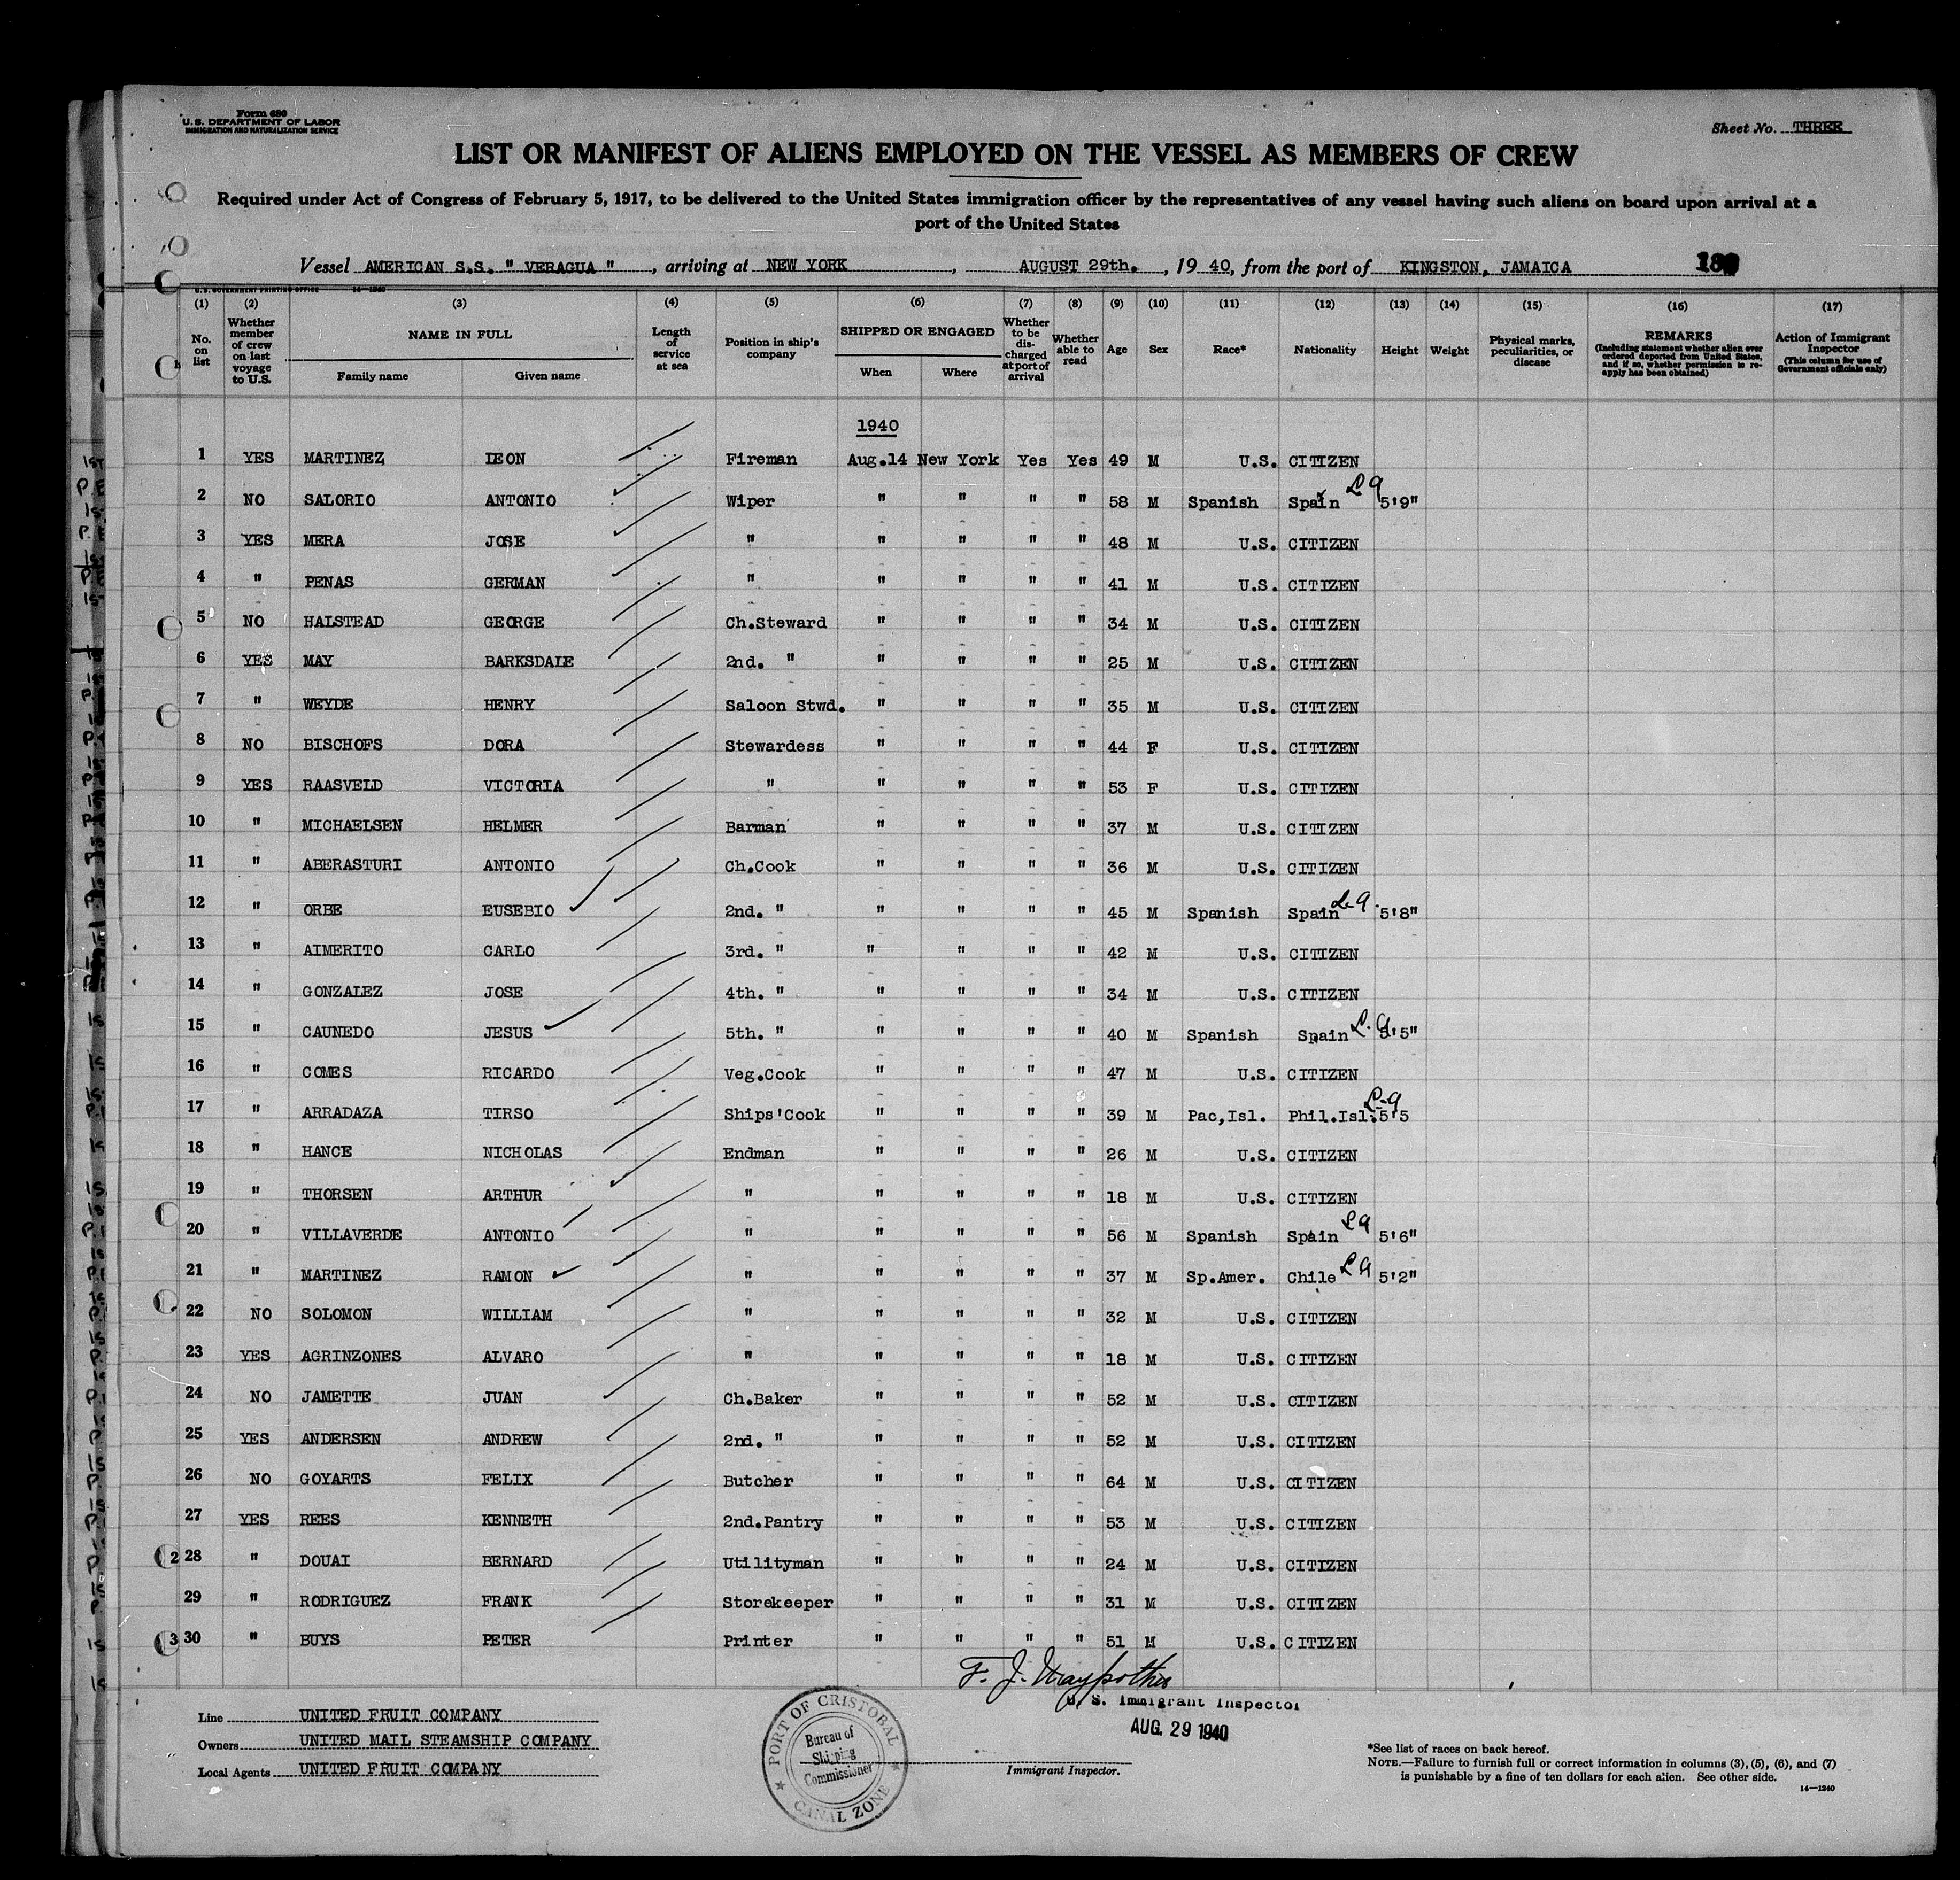 Form 680
U. S. DEPARTMENT OF LABOR
IMMIGRATION AND NATURALIZATION SERVICE
Sheet No. THREE
LIST OR MANIFEST OF ALIENS EMPLOYED ON THE VESSEL AS MEMBERS OF CREW
Required under Act of Congress of February 5, 1917, to be delivered to the United States immigration officer by the representatives of any vessel having such aliens on board upon arrival at a
port of the United States
Vessel AMERICAN S.S. " VERAGUA ", arriving at NEW YORK, AUGUST 29th., 19 40, from the port of KINGSTON, JAMAICA
U. S. GOVERNMENT PRINTING OFFICE 14—1240
(1) (2) (3) (4) (5) (6) (7) (8) (9) (10) (11) (12) (13) (14) (15) (16) (17)
No. on list
Whether member of crew on last voyage to U.S.
NAME IN FULL
Family name Given name
Length of service at sea
Position in ship's company
SHIPPED OR ENGAGED
When Where
Whether to be discharged at port of arrival
Whether able to read
Age
Sex
Race*
Nationality
Height
Weight
Physical marks, peculiarities, or disease
REMARKS
(Including statement whether alien ever ordered deported from United States, and if so, whether permission to reapply has been obtained)
Action of Immigrant Inspector
(This column for use of Government officials only)
1940
1 YES MARTINEZ LEON Fireman Aug.14 New York Yes Yes 49 M U.S. CITIZEN
2 NO SALORIO ANTONIO Wiper " " " " 58 M Spanish Spain 5'9"
3 YES MERA JOSE " " " " " 48 M U.S. CITIZEN
4 " PENAS GERMAN " " " " " 41 M U.S. CITIZEN
5 NO HALSTEAD GEORGE Ch.Steward " " " " 34 M U.S. CITIZEN
6 YES MAY BARKSDALE 2nd. " " " " " 25 M U.S. CITIZEN
7 " WEYDE HENRY Saloon Stwd. " " " " 35 M U.S. CITIZEN
8 NO BISCHOFS DORA Stewardess " " " " 44 F U.S. CITIZEN
9 YES RAASVELD VICTORIA " " " " " 53 F U.S. CITIZEN
10 " MICHAELSEN HELMER Barman " " " " 37 M U.S. CITIZEN
11 " ABERASTURI ANTONIO Ch.Cook " " " " 36 M U.S. CITIZEN
12 " ORBE EUSEBIO 2nd. " " " " " 45 M Spanish Spain 5'8"
13 " AIMERITO CARLO 3rd. " " " " " 42 M U.S. CITIZEN
14 " GONZALEZ JOSE 4th. " " " " " 34 M U.S. CITIZEN
15 " CAUNEDO JESUS 5th. " " " " " 40 M Spanish Spain 5'5"
16 " COMES RICARDO Veg.Cook " " " " 47 M U.S. CITIZEN
17 " ARRADAZA TIRSO Ships'Cook " " " " 39 M Pac,Isl. Phil.Isl. 5'5
18 " HANCE NICHOLAS Endman " " " " 26 M U.S. CITIZEN
19 " THORSEN ARTHUR " " " " " 18 M U.S. CITIZEN
20 " VILLAVERDE ANTONIO " " " " " 56 M Spanish Spain 5'6"
21 " MARTINEZ RAMON " " " " " 37 M Sp.Amer. Chile 5'2"
22 NO SOLOMON WILLIAM " " " " " 32 M U.S. CITIZEN
23 YES AGRINZONES ALVARO " " " " " 18 M U.S. CITIZEN
24 NO JAMETTE JUAN Ch.Baker " " " " 52 M U.S. CITIZEN
25 YES ANDERSEN ANDREW 2nd. " " " " " 52 M U.S. CITIZEN
26 NO GOYARTS FELIX Butcher " " " " 64 M U.S. CITIZEN
27 YES REES KENNETH 2nd.Pantry " " " " 53 M U.S. CITIZEN
28 " DOUAI BERNARD Utilityman " " " " 24 M U.S. CITIZEN
29 " RODRIGUEZ FRANK Storekeeper " " " " 31 M U.S. CITIZEN
30 " BUYS PETER Printer " " " " 51 M U.S. CITIZEN
F. J.
U. S. Immigrant Inspector
AUG. 29 1940
Immigrant Inspector.
Line UNITED FRUIT COMPANY
Owners UNITED MAIL STEAMSHIP COMPANY
Local Agents UNITED FRUIT COMPANY
PORT OF CRISTOBAL
Bureau of
Shipping
Commissioner
CANAL ZONE
*See list of races on back hereof.
NOTE.—Failure to furnish full or correct information in columns (3), (5), (6), and (7)
is punishable by a fine of ten dollars for each alien. See other side.
14—1240